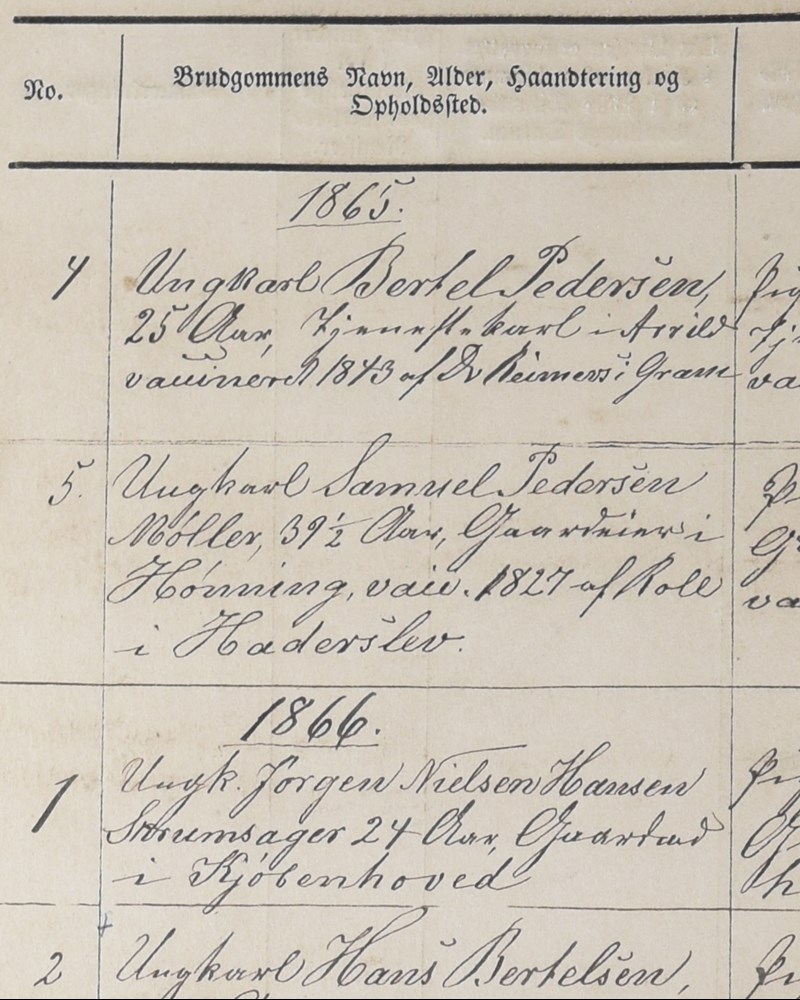 No.
Brudgommens Navn, Alder, Haandtering og
Opholdssted.
1865.
4 Ungkarl Bertel Pedersen, Pig
25 Aar, Tjenestekarl i Arrild Tj
vaccineret 1843 af Dr Reimers i Gram va
5. Ungkarl Samuel Pedersen
Møller, 39½ Aar, Gaardeier i G
Hønning, vacc. 1827 af Koll va
i Haderslev.
1866.
1 Ungk. Jørgen Nielsen Hansen
Skrumsager 24 Aar, Gaardmd
i Kjöbenhoved
2 Ungkarl Hans Bertelsen,